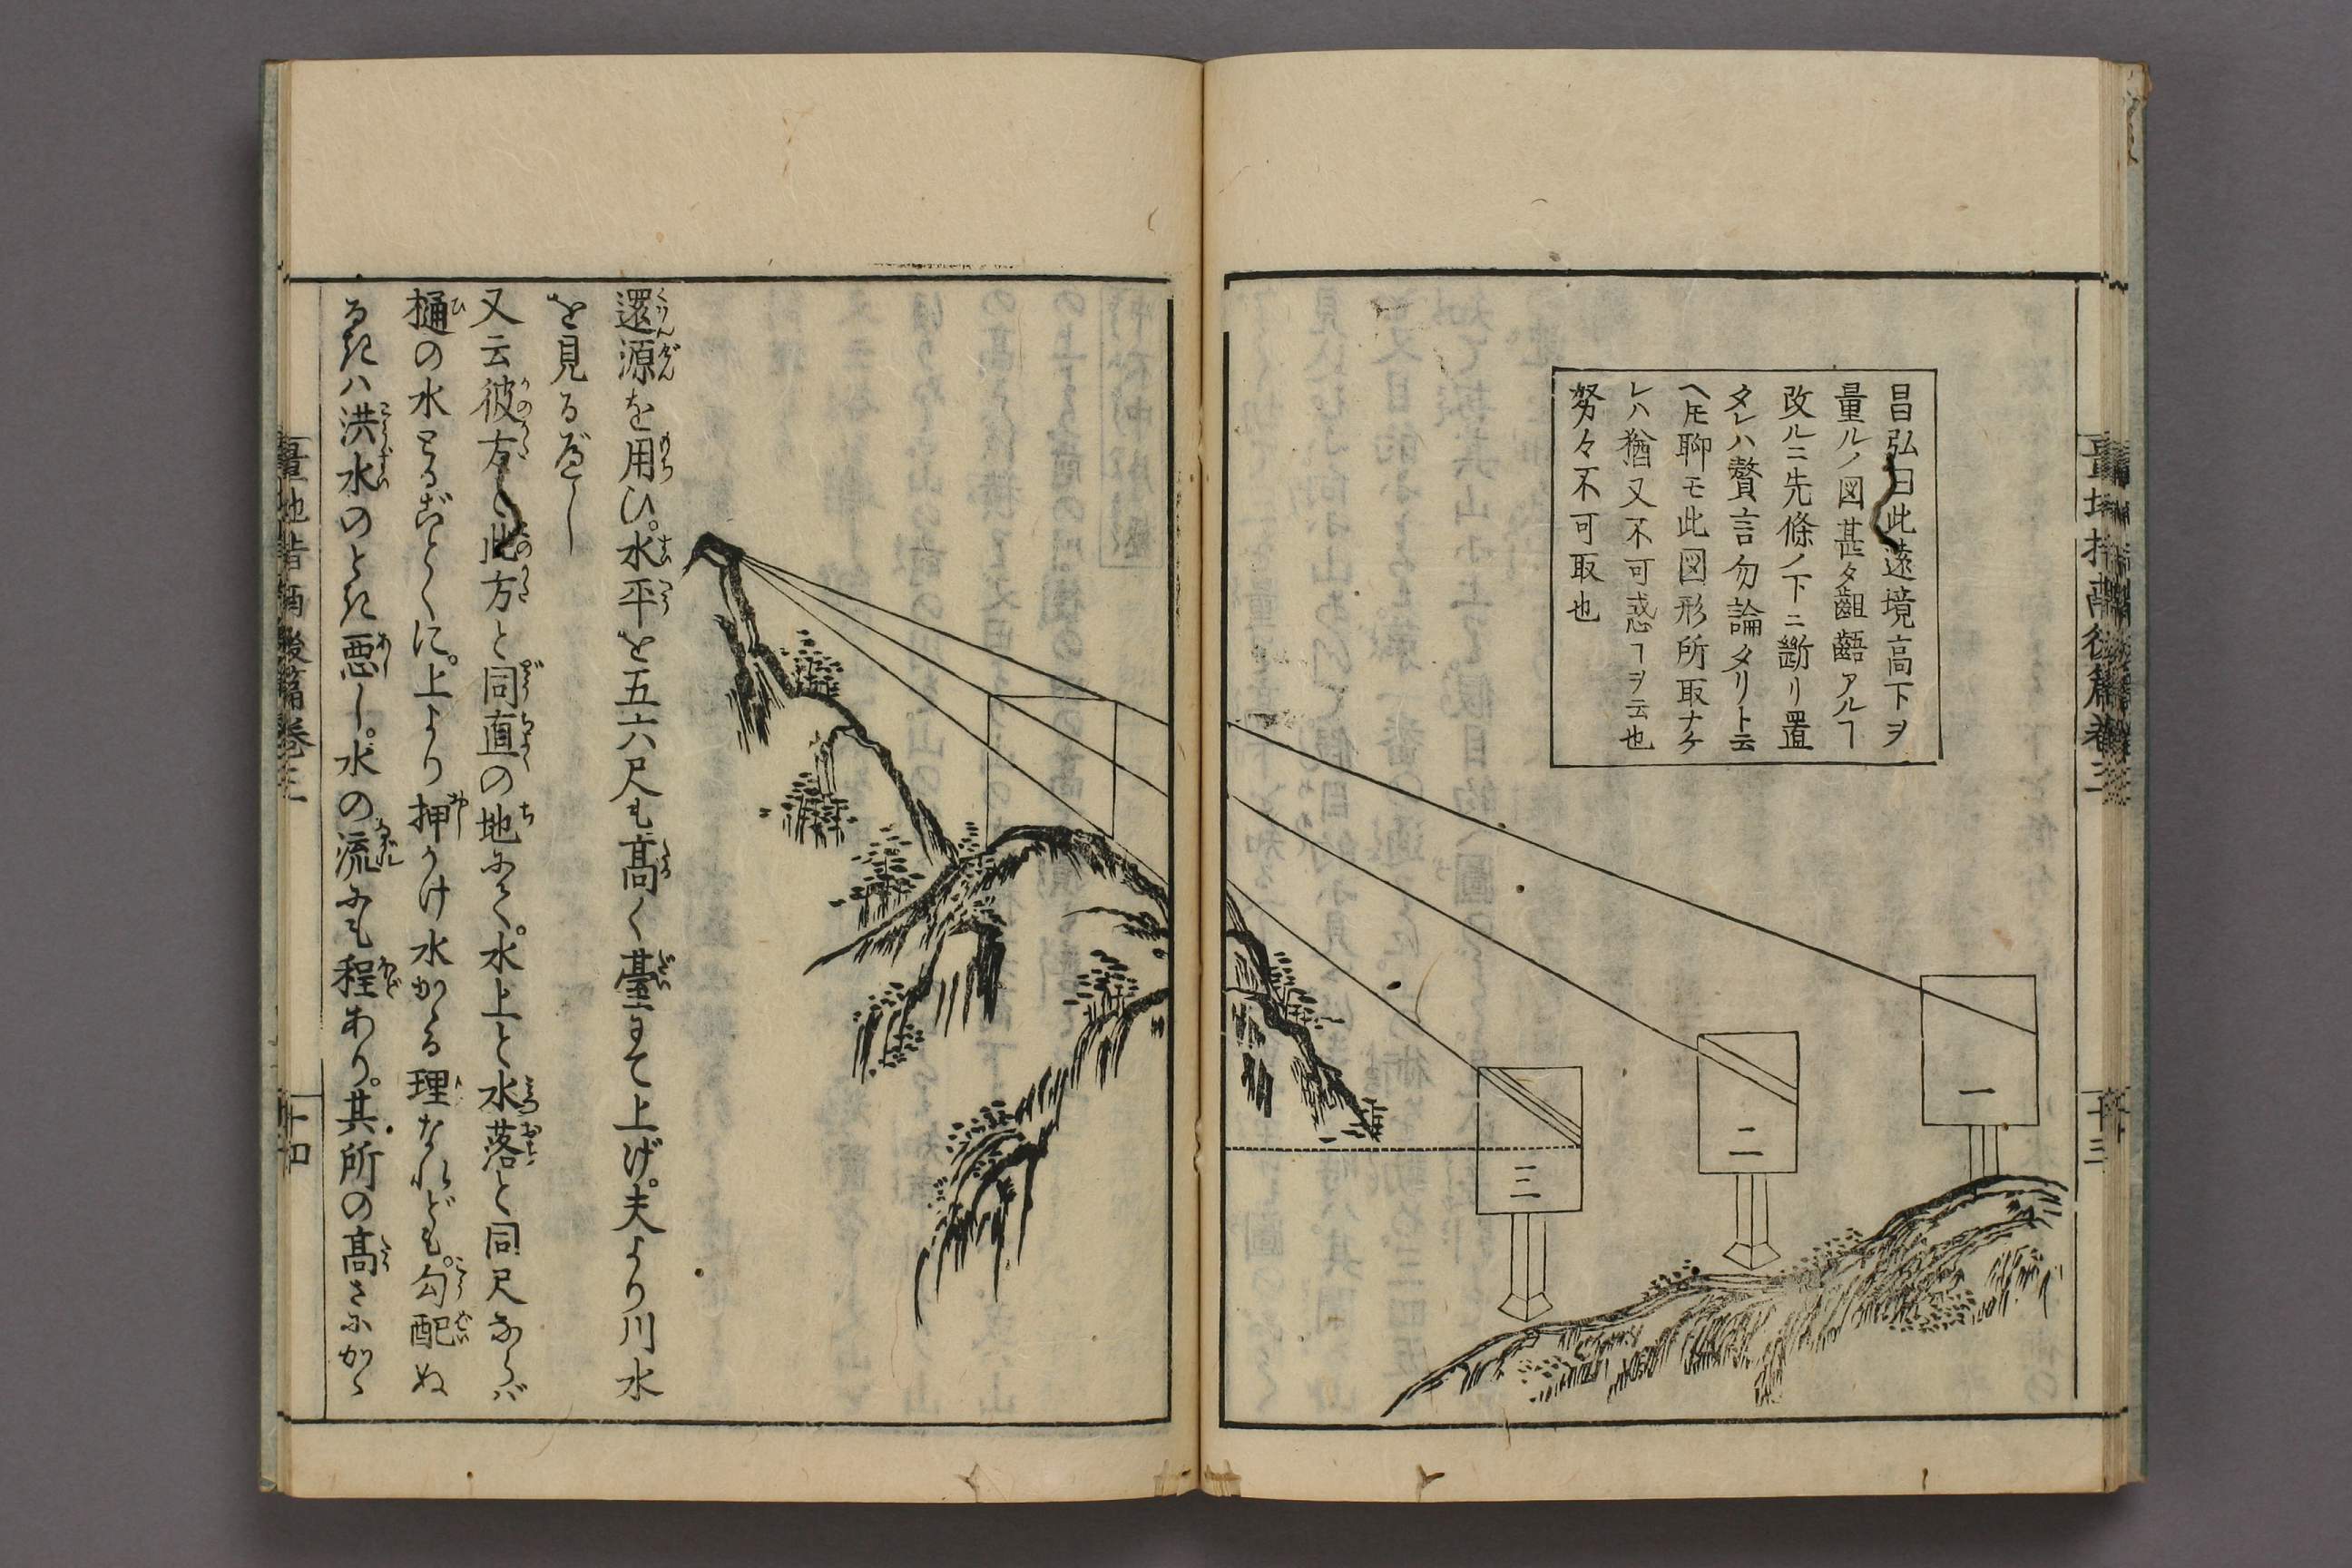 昌弘曰此遠境高下ヲ
量ルノ図甚タ齟齬アルヿ
改ルニ先條ノ下ニ斷リ置
タレハ贅言勿論タリト云
ヘ𪜈聊モ此図形所取ナケ
レハ猶又不可惑ヿヲ云也
努々不可取也
一
二
三
量地指南後篇巻三
十三
還源を用ひ。水平を五六尺も髙く臺にて上げ。夫より川水
を見るべし
又云彼方と此方と同直の地にて。水上と水落と同尺ならバ
樋の水とるごとくに。上より押かけ水かゝる理なれども。勾配ぬ
るきハ洪水のとき悪し。水の流にも程あり。其所の髙さにかゝ
量地指南後篇巻三
十四